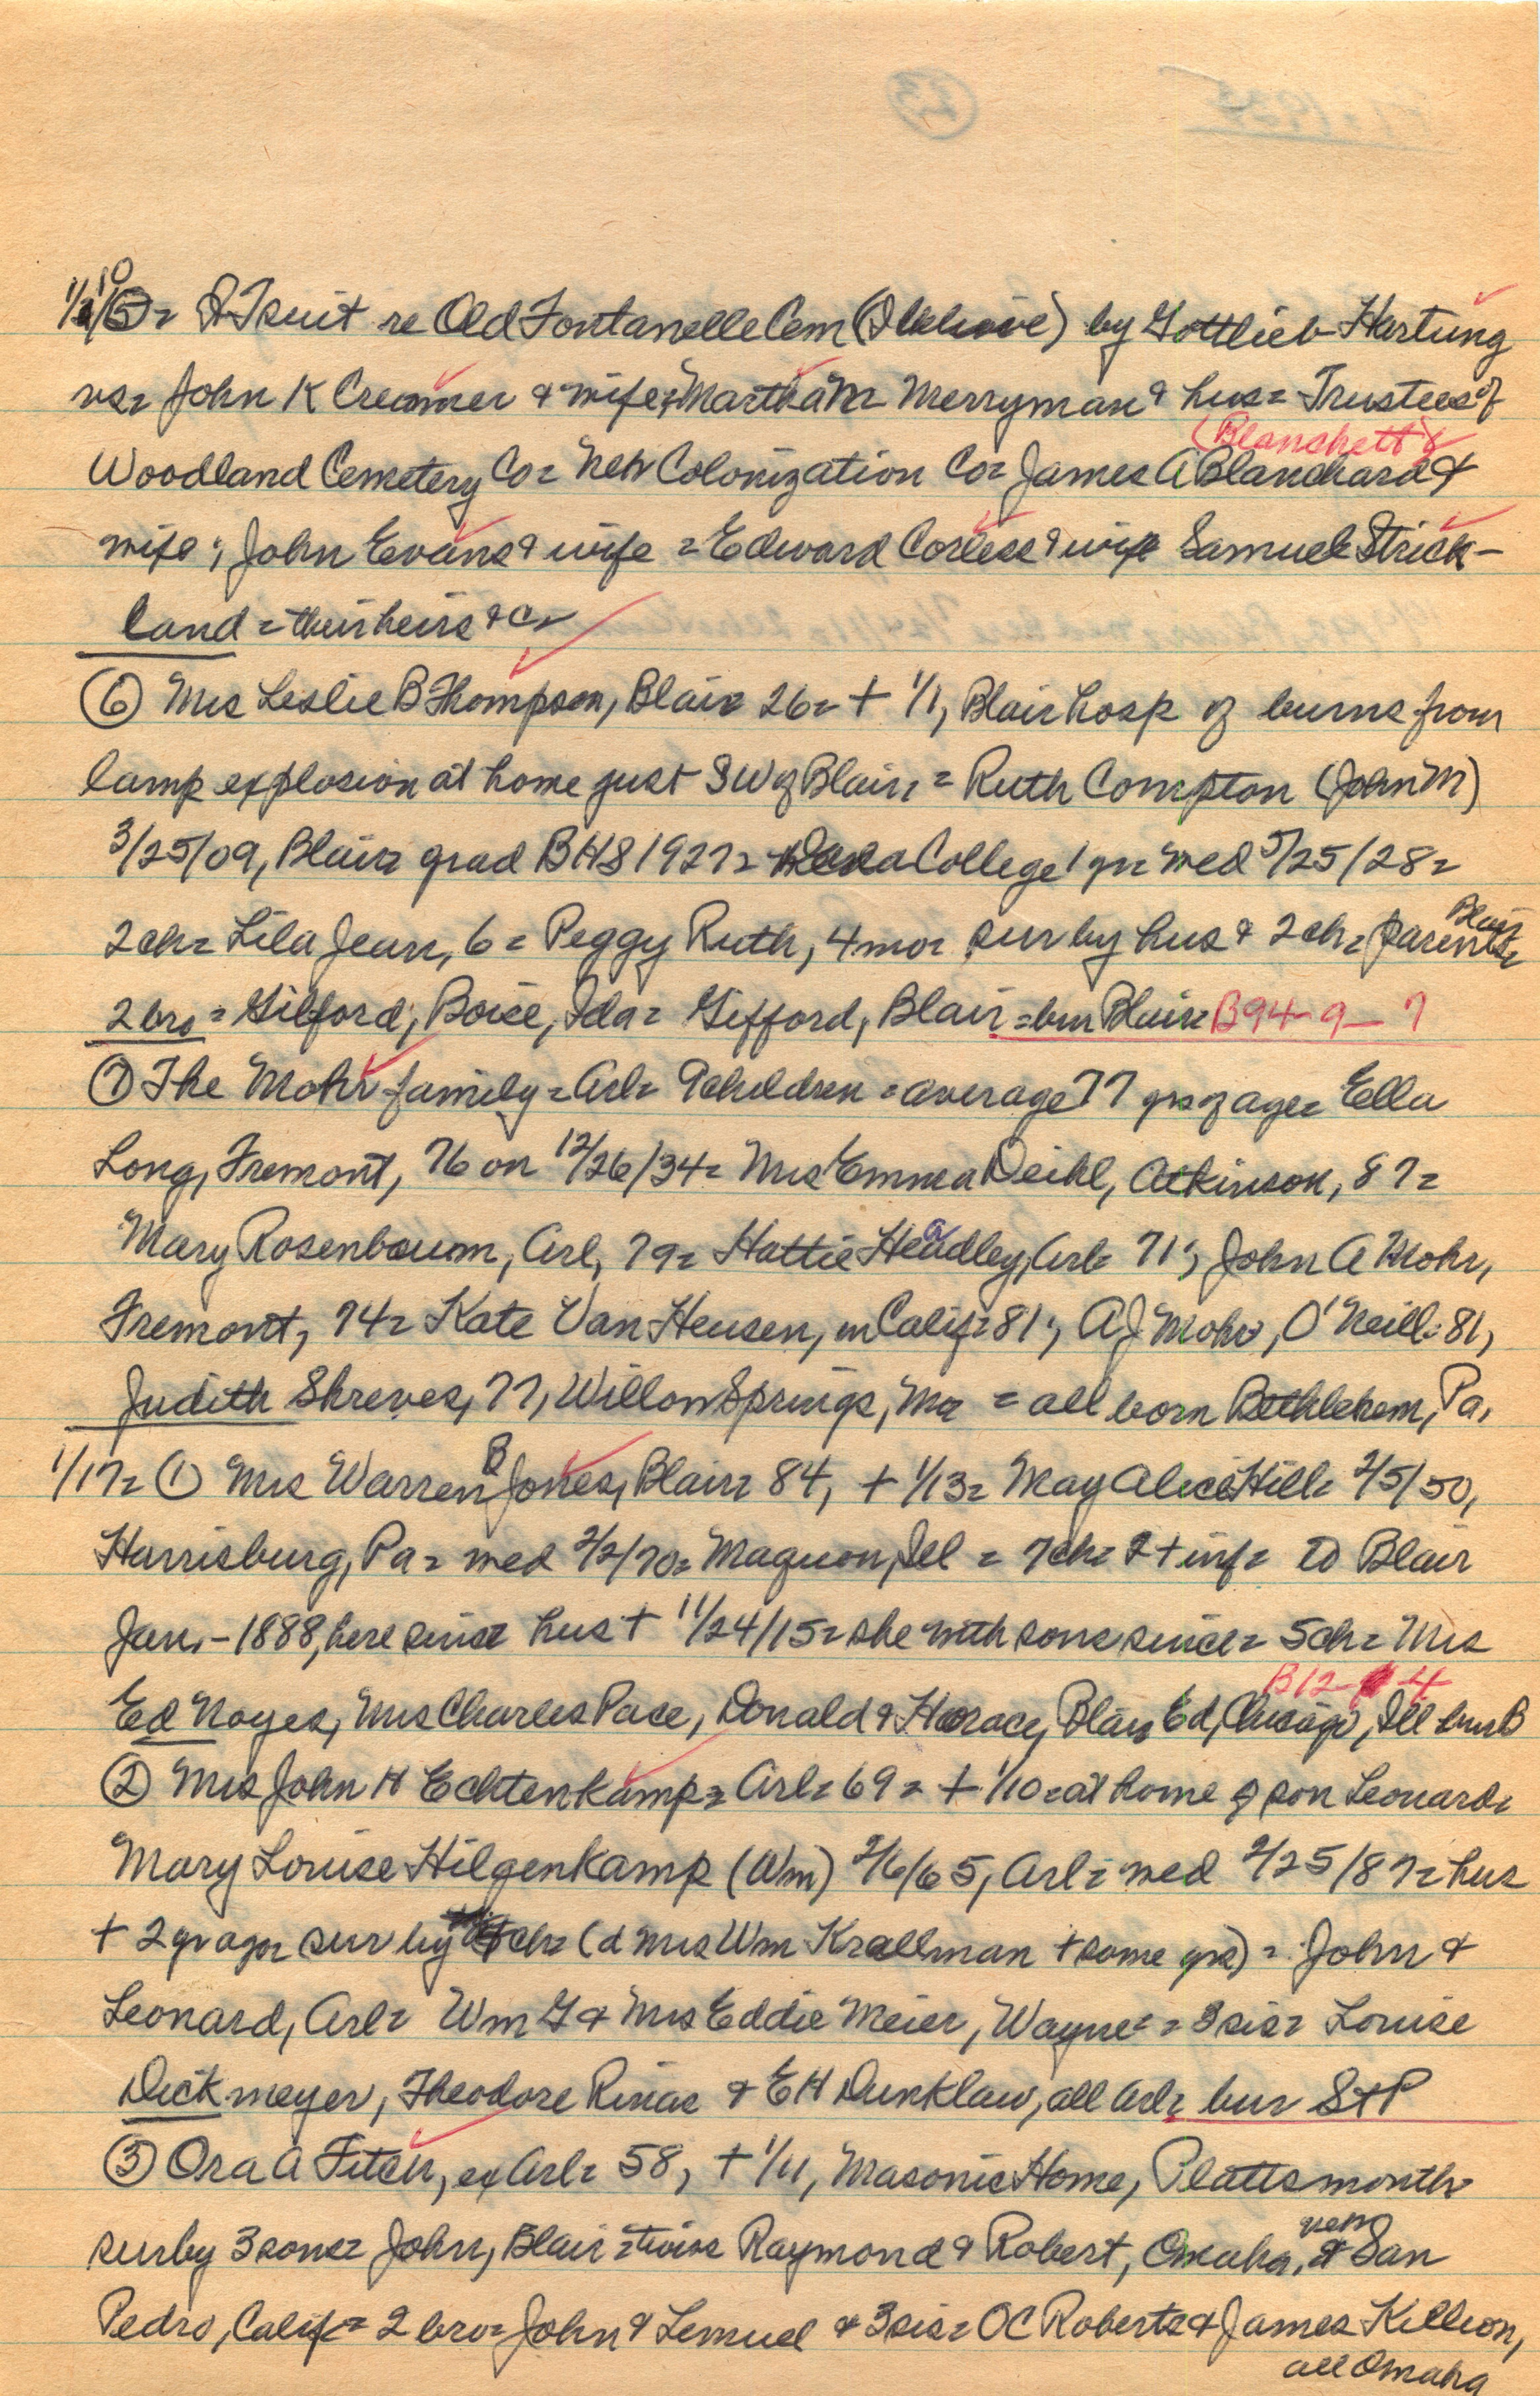 1/10 = QT suit re Old Fontanelle Cem by Gottlieb Hartung
vs = John K Creamer & wife; Martha M Merryman & hus = Trustees of
(Blanchett)
Woodland Cemetery Co = Neb Colonization Co = James A Blanchard &
wife; John Evans & wife = Edward Corless & wife Samuel Strick-
land = their heirs &c
(6) Mrs Leslie B Thompson, Blair 26 = + 1/1, Blair hosp of burns from
lamp explosion at home just SW of Blair = Ruth Compton (John M)
3/25/09, Blair grad BHS 1927 = Dana College 1 yr = med 5/25/28 =
2 ch = Lila Jean, 6 = Peggy Ruth, 4 mo = sur by hus & 2 ch = parents Blair =
2 bro = Gilford, Boise, Ida = Gifford, Blair = bur Blair B94-9-7
(7) The Mohr family = Arl = 9 children = average 77 yrs of age = Ella
Long, Fremont, 76 on 12/26/34 = Mrs Emma Deihl, Atkinson, 87 =
Mary Rosenbaum, Arl, 79 = Hattie Headley, Arl = 71; John A Mohr,
Fremont, 74 = Kate Van Heusen, in Calif = 81; AJ Mohr, O'Neill = 81,
Judith Shreves, 77, Willow Springs, Mo = all born Bethlehem, Pa,
1/17 = (1) Mrs Warren B Jones, Blair = 84, + 1/13 = May Alice Hill = 2/5/50,
Harrisburg, Pa = med 2/2/70 = Maquon, Ill = 7 ch = 2 + inf = to Blair
Jan, -1888, here since hus + 11/24/15 = she with sons since = 5 ch = Mrs
B12- -4
Ed Noyes, Mrs Charles Pace, Donald & Horace, Blair Ed, Chicago, Ill bur B
(2) Mrs John H Echtenkamp = Arl = 69 = + 1/10 = at home of son Leonard =
Mary Louise Hilgenkamp (Wm) 2/6/65, Arl = med 2/25/87 = hus
+ 2 yr ago = sur by 4 ch = (d Mrs Wm Krallman + some yrs) = John &
Leonard, Arl = Wm G & Mrs Eddie Meier, Wayne = 3 sis = Louise
Dickmeyer, Theodore Rinas & EH Dunklau, all Arl = bur St P
(3) Ora A Fitch, ex Arl = 58, + 1/11, Masonic Home, Plattsmouth
sur by 3 sons = John, Blair = twins Raymond & Robert, Omaha, & San
Pedro, Calif = 2 bro = John & Lemuel & 3 sis = OC Roberts & James Killion,
all Omaha